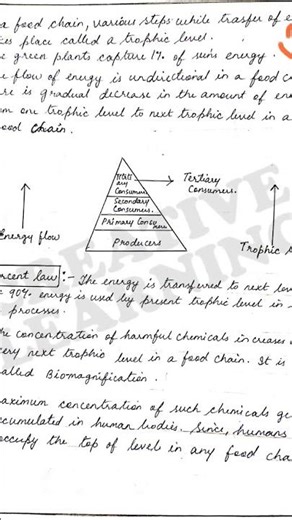 a food chain, various steps while trasfer of e
es place called a trophic level.
e green plants capture 1% of sun's energy.
e flow of energy is undirectional in a food c
re is gradual decrease in the amount of en
om one trophic level to next trophic level in a
ood chain.
Tertiary
Consumers.
Secondary
Consumers.
Primary Consumers
Producers
Energy flow
Trophic
ercent law :- The energy is transfured to next
90% energy is used by present trophic level in
processes.
he concentration of harmful chemicals increases
very next trophic level in a food chain. It is
alled Biomagnification.
aximum concentration of such chemicals g
ccumulated in human bodies. Since, humans
occupy the top of level in any food cha
CREATIVE
LEARNING